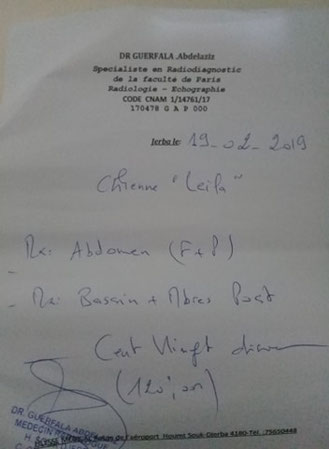 DR GUERFALA .Abdelaziz
Specialiste en Radiodiagnostic
de la faculté de Paris
Radiologie - Echographie
CODE CNAM 1/14761/17
170478 G A P 000
Jerba le: 19_02_2019
Chienne "Leila"
Rx: Abdomen (F+P)
- Rx: Bassin + Mbres Post
Cent Vingt dinars
DR. GUERFALA ABDELAZIZ
MEDECIN
de l'aéroport Houmt Souk-Djerba 4180-Tél :75650448